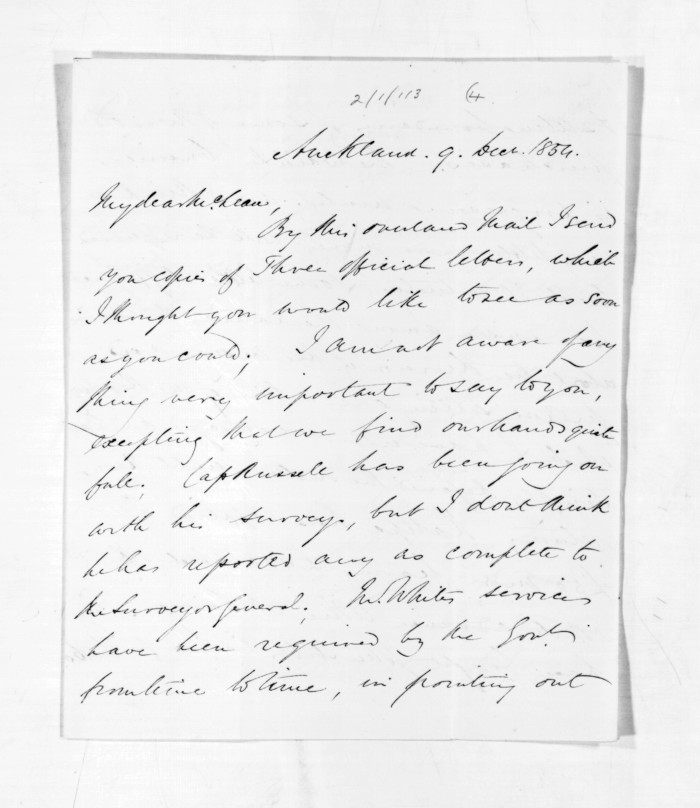 2/1/113 (4
Auckland. 9. Decr. 1854.
My dear McLean,
By this overland Mail I send
you copies of Three official letters, which
I thought you would like to see as soon
as you could; I am not aware of any
thing very important to say to you,
excepting that we find our hands quite
full; Cap Russell has been going on
with his surveys, but I dont think
he has reported any as complete to
the Surveyor General; Mr. White's services
have been required by the Govt.
from time to time, in pointing out